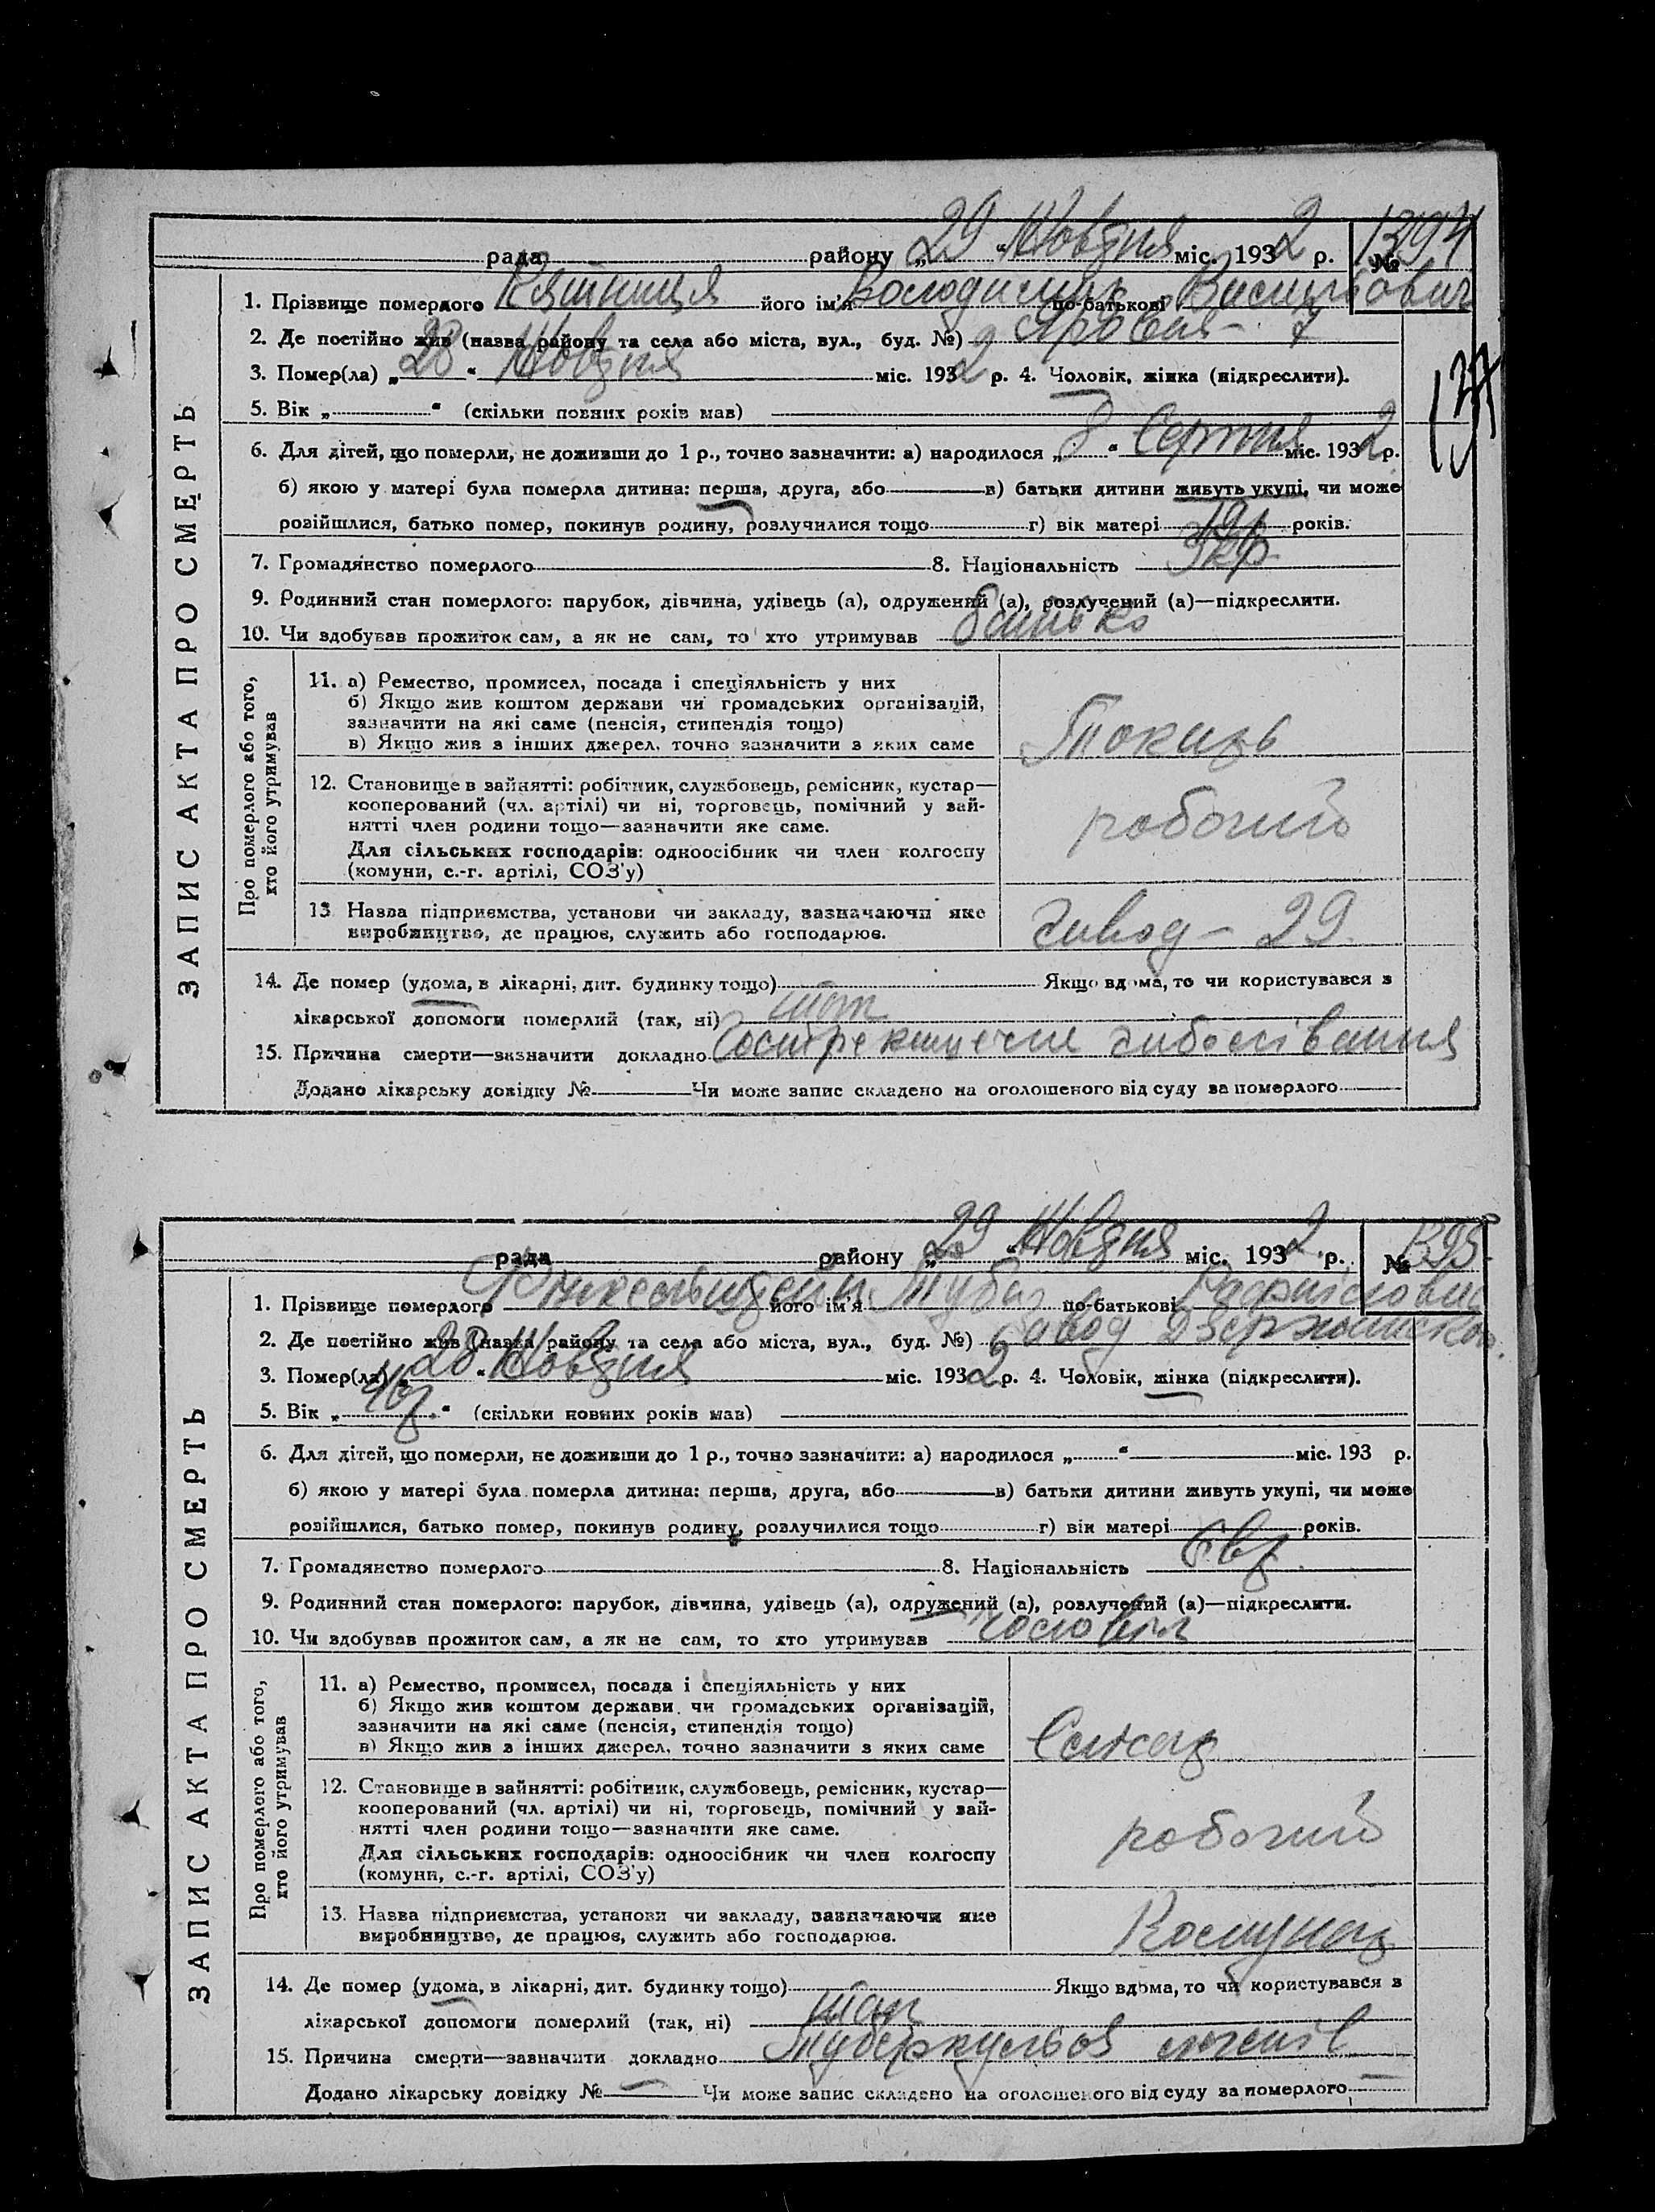 ЗАПИС АКТА ПРО СМЕРТЬ
рада району „29“ Жовтня міс. 1932 р. № 1394
1. Прізвище померлого Квітниця його ім'я Володимир по-батькові Васильович
2. Де постійно жив (назва району та села або міста, вул., буд. №) 7
3. Помер(ла) „28“ Жовтня міс. 1932 р. 4. Чоловік, жінка (підкреслити).
5. Вік „ “ (скільки повних років мав)
6. Для дітей, що померли, не доживши до 1 р., точно зазначити: а) народилося „8“ Серпня міс. 1932 р.
б) якою у матері була померла дитина: перша, друга, або в) батьки дитини живуть укупі, чи може
розійшлися, батько помер, покинув родину, розлучилися тощо г) вік матері 19 р років.
7. Громадянство померлого 8. Національність Укр
9. Родинний стан померлого: парубок, дівчина, удівець (а), одружений (а), розлучений (а)—підкреслити.
10. Чи здобував прожиток сам, а як не сам, то хто утримував батько
Про померлого або того, хто його утримував
11. а) Ремество, промисел, посада і спеціяльність у них
б) Якщо жив коштом держави чи громадських організацій,
зазначити на які саме (пенсія, стипендія тощо)
в) Якщо жив з інших джерел, точно зазначити з яких саме
Токарь
12. Становище в зайнятті: робітник, службовець, ремісник, кустар—
кооперований (чл. артілі) чи ні, торговець, помічний у зай-
нятті член родини тощо—зазначити яке саме.
Для сільських господарів: одноосібник чи член колгоспу
(комуни, с.-г. артілі, СОЗ'у)
робочий
13. Назва підприємства, установи чи закладу, зазначаючи яке
виробництво, де працює, служить або господарює.
завод - 29
14. Де помер (удома, в лікарні, дит. будинку тощо) Якщо вдома, то чи користувався з
лікарської допомоги померлий (так, ні) так
15. Причина смерти—зазначити докладно Гостре кишечне
Додано лікарську довідку № Чи може запис складено на оголошеного від суду за померлого
ЗАПИС АКТА ПРО СМЕРТЬ
рада району „29“ Жовтня міс. 1932 р. № 1395
1. Прізвище померлого Фінкельштейн його ім'я по-батькові
2. Де постійно жив (назва району та села або міста, вул., буд. №) завод
3. Помер(ла) „28“ Жовтня міс. 1932 р. 4. Чоловік, жінка (підкреслити).
5. Вік „ “ (скільки повних років мав)
6. Для дітей, що померли, не доживши до 1 р., точно зазначити: а) народилося „ “ міс. 193 р.
б) якою у матері була померла дитина: перша, друга, або в) батьки дитини живуть укупі, чи може
розійшлися, батько помер, покинув родину, розлучилися тощо г) вік матері років.
7. Громадянство померлого 8. Національність Євр.
9. Родинний стан померлого: парубок, дівчина, удівець (а), одружений (а), розлучений (а)—підкреслити.
10. Чи здобував прожиток сам, а як не сам, то хто утримував чоловік
Про померлого або того, хто його утримував
11. а) Ремество, промисел, посада і спеціяльність у них
б) Якщо жив коштом держави чи громадських організацій,
зазначити на які саме (пенсія, стипендія тощо)
в) Якщо жив з інших джерел, точно зазначити з яких саме
12. Становище в зайнятті: робітник, службовець, ремісник, кустар—
кооперований (чл. артілі) чи ні, торговець, помічний у зай-
нятті член родини тощо—зазначити яке саме.
Для сільських господарів: одноосібник чи член колгоспу
(комуни, с.-г. артілі, СОЗ'у)
робочий
13. Назва підприємства, установи чи закладу, зазначаючи яке
виробництво, де працює, служить або господарює.
14. Де помер (удома, в лікарні, дит. будинку тощо) Якщо вдома, то чи користувався з
лікарської допомоги померлий (так, ні) так
15. Причина смерти—зазначити докладно Туберкульоз легенів
Додано лікарську довідку № — Чи може запис складено на оголошеного від суду за померлого